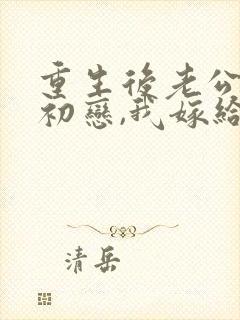 重生後老公
初戀,我嫁給
清岳